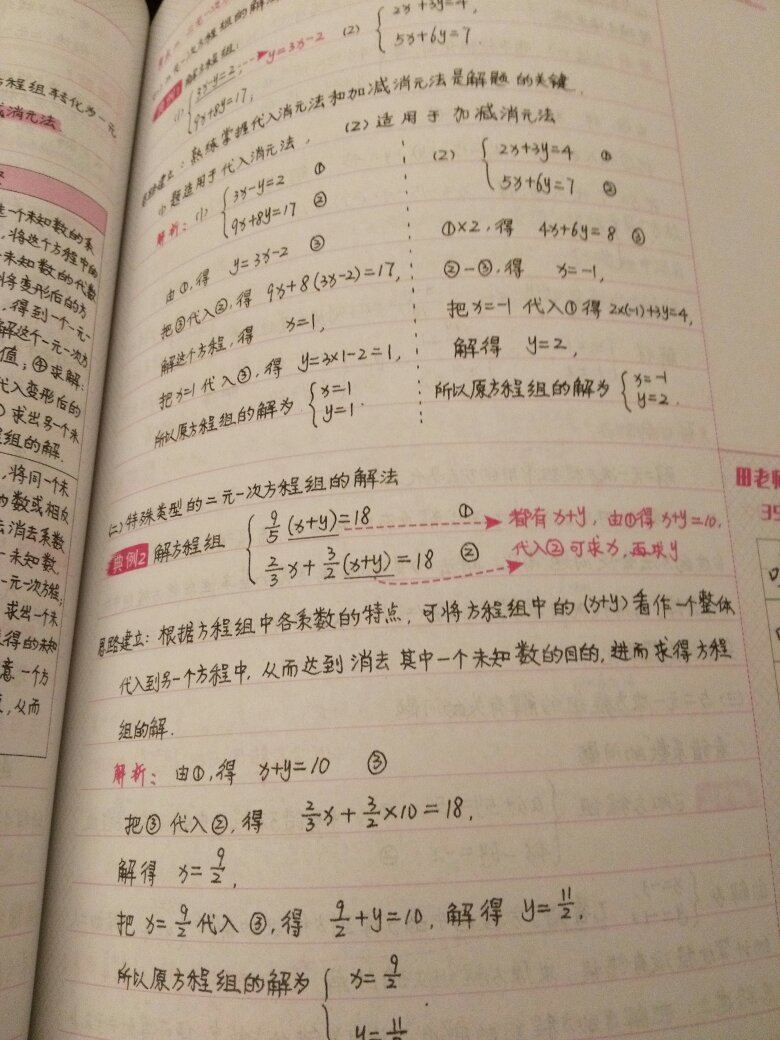 程组转化为一元
减消元法
一个未知数的系
，将这个方程中的
未知数的代数
将变形后的方
，得到一个一元一
解这个一元一次方
值；④求解.
代入变形后的
求出另一个未
程组的解.
，将同一个未
的数或相反
去消去系数
一未知数,
一元一次方程;
求出一个未
求得的未知
意一个方
，从而
元一次方程组的解法
典例1 解方程组：
(1) {3x-y=2, → y=3x-2
9x+8y=17,
(2) {2x+3y=4,
5x+6y=7.
思路建立：熟练掌握代入消元法和加减消元法是解题的关键.
(1)题适用于代入消元法，(2)适用于加减消元法
解析：(1) {3x-y=2 ①
9x+8y=17 ②
由①,得 y=3x-2 ③
把③代入②,得 9x+8(3x-2)=17,
解这个方程,得 x=1,
把x=1代入③,得 y=3×1-2=1,
所以原方程组的解为 {x=1
y=1.
(2) {2x+3y=4 ①
5x+6y=7 ②
①×2,得 4x+6y=8 ③
②-③,得 x=-1,
把x=-1代入①得 2×(-1)+3y=4,
解得 y=2,
所以原方程组的解为 {x=-1
y=2.
(二)特殊类型的二元一次方程组的解法
典例2 解方程组 {9/5(x+y)=18 ① → 都有x+y, 由①得x+y=10,
2/3x+3/2(x+y)=18 ② 代入②可求x,再求y
思路建立：根据方程组中各系数的特点，可将方程组中的(x+y)看作一个整体
代入到另一个方程中，从而达到消去其中一个未知数的目的，进而求得方程
组的解.
解析：由①,得 x+y=10 ③
把③代入②,得 2/3x+3/2×10=18,
解得 x=9/2,
把x=9/2代入③,得 9/2+y=10, 解得 y=11/2,
所以原方程组的解为 {x=9/2
y=11/2
田老师